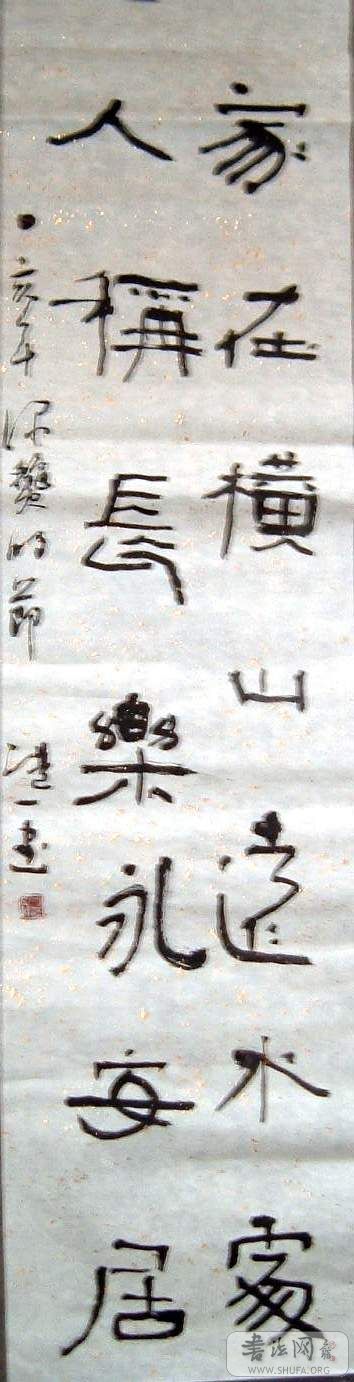 家在橫山遠水處
人稱長樂永安居
亥年 深 時節 一書
書法网
WWW.SHUFA.ORG